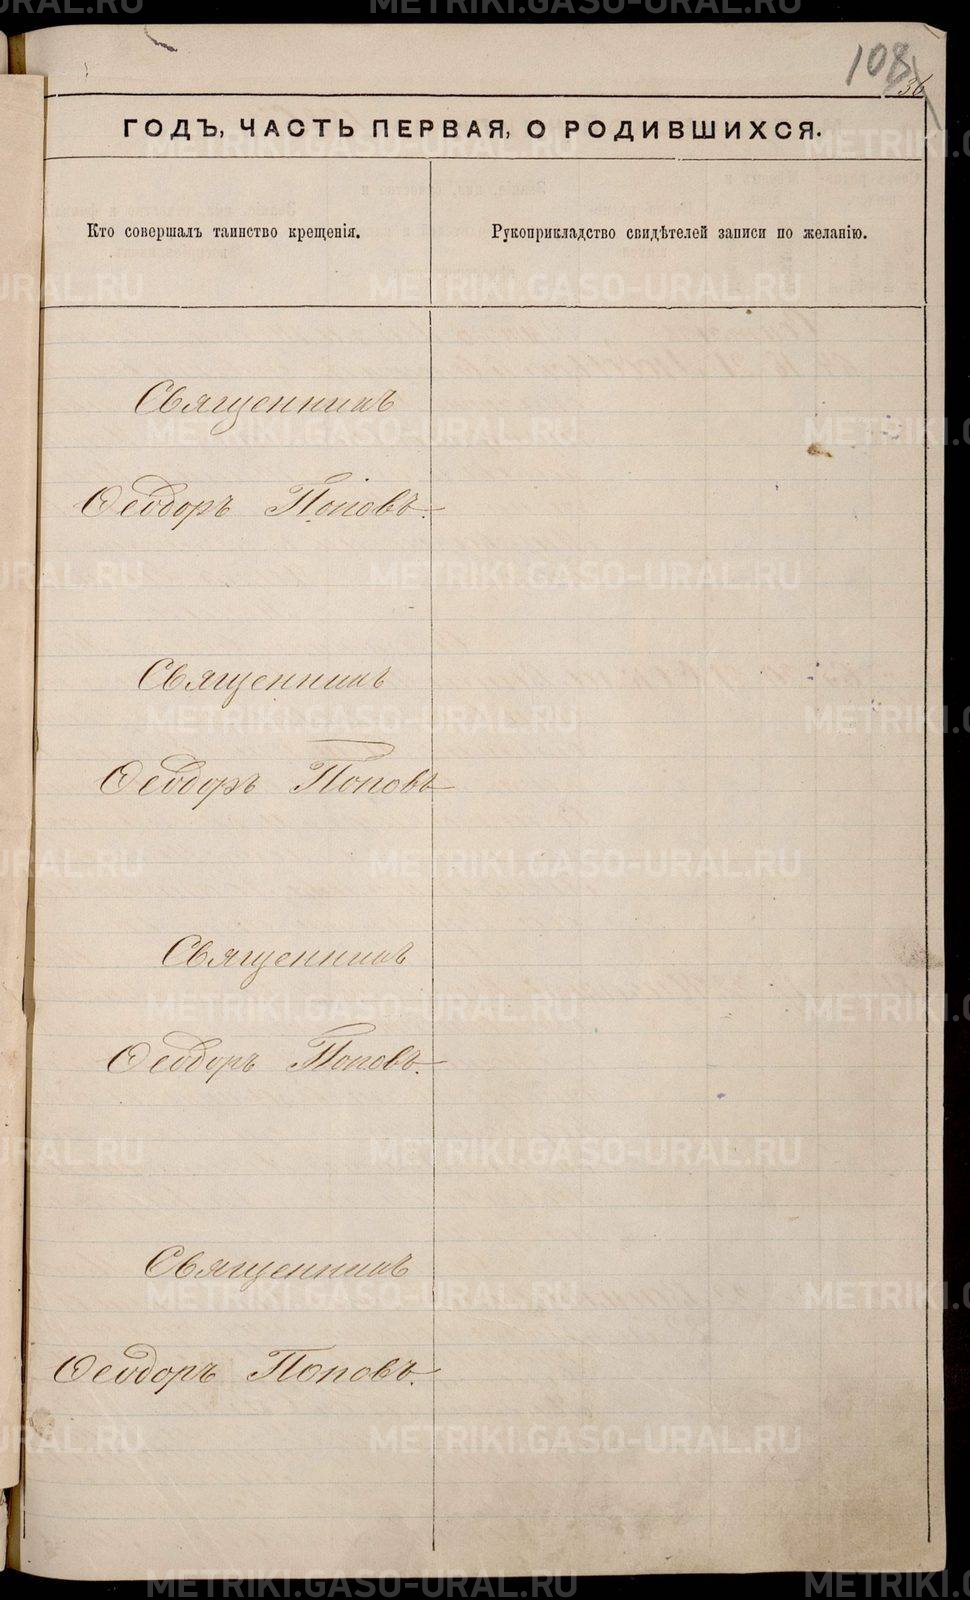 108
36
ГОДЪ, ЧАСТЬ ПЕРВАЯ, О РОДИВШИХСЯ.
Кто совершалъ таинство крещенія.
Рукоприкладство свидѣтелей записи по желанію.
Священникъ
Ѳеодоръ Поповъ.
Священникъ
Ѳеодоръ Поповъ
Священникъ
Ѳеодоръ Поповъ.
Священникъ
Ѳеодоръ Поповъ.
METRIKI.GASO-URAL.RU